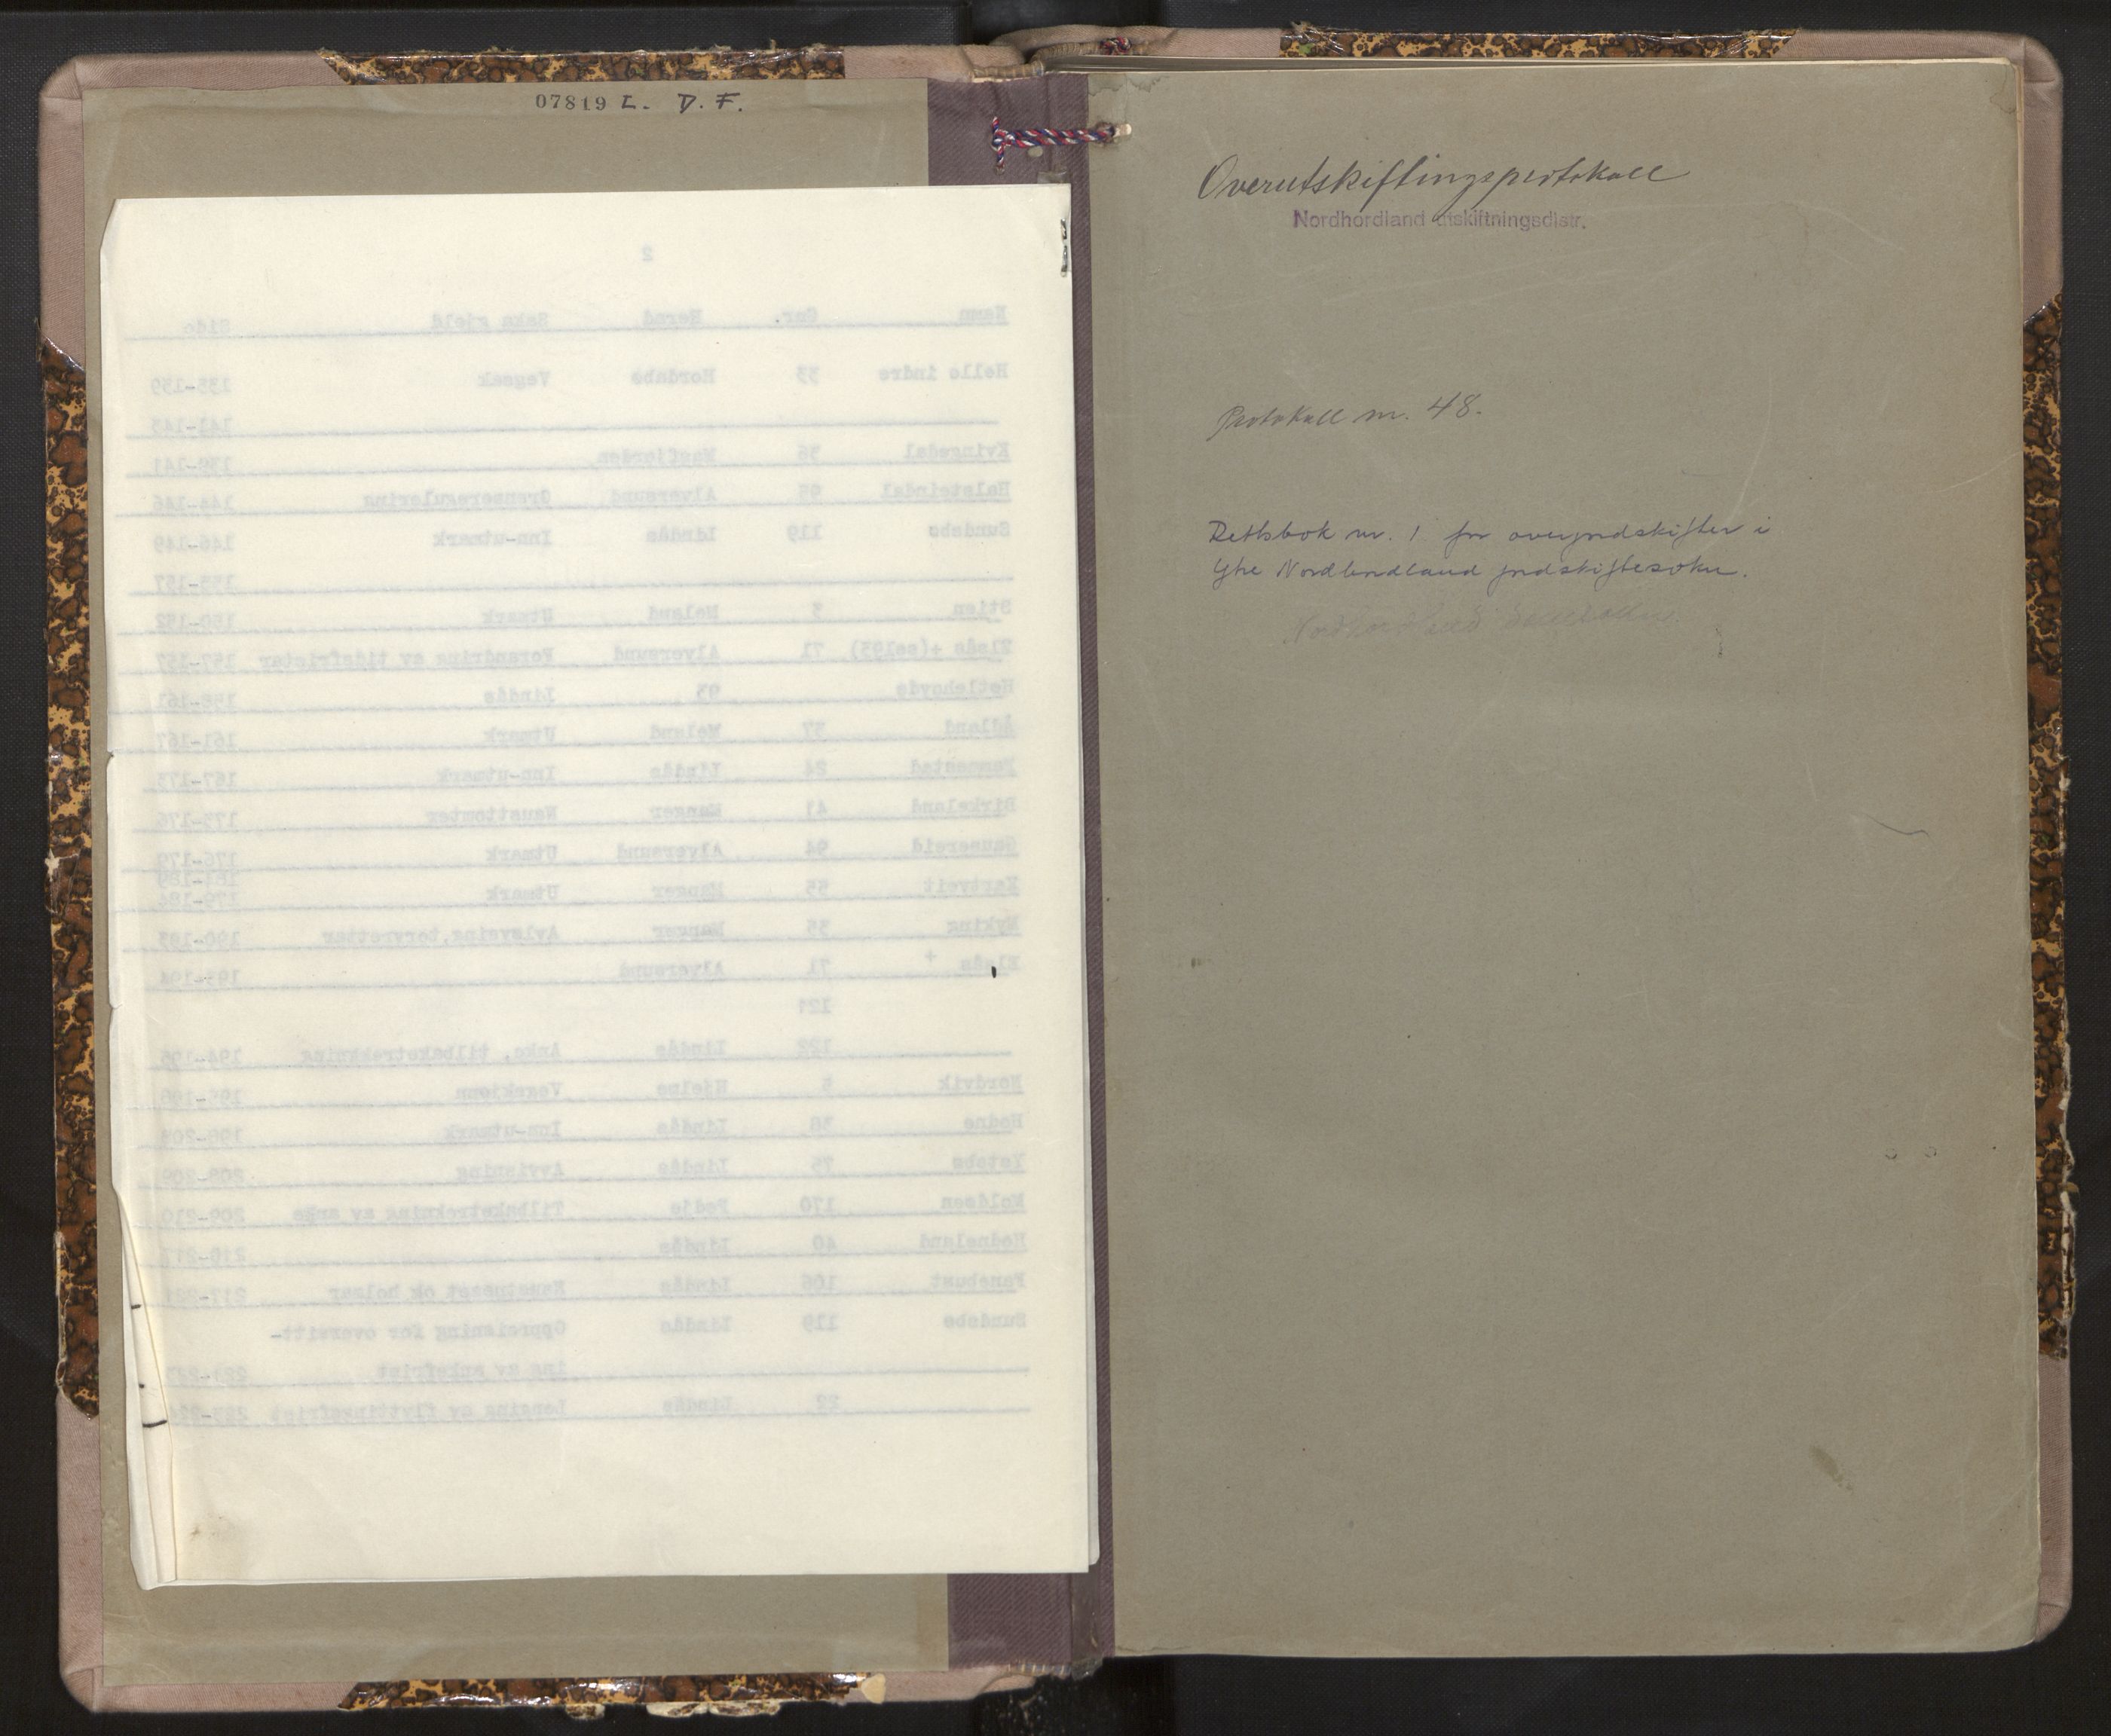 07819 L. D. F.
2
Namn Gnr. Herad Saka gjeld Side
Helle indre 33 Hordabø Vegsak 135-139
141-143
Kvingedal 36 139-141
Halsteindal 95 Alversund Grenseregulering 144-146
Sundsbø 119 Lindås Inn-utmark 146-149
155-157
Utmark 150-152
71 Alversund Forandring av tidsfrister 157-157
93 Lindås 158-161
Ådland 37 Meland Utmark 161-167
24 Lindås Inn-utmark 167-173
Birkeland 41 Manger Nausttomter 173-176
94 Alversund Utmark 176-179
55 Manger Utmark 179-184
Nyking 36 Manger Avløysing, torvretter 190-193
71 Alversund 193-194
121
122 Lindås Anke, tilbaketrekking 194-195
Nordvik 5 Hjelme
Hodne 38 Lindås Inn-utmark
75 Lindås Avvisning 208-209
170 Fedje Tilbaketrekning av anke 209-210
Hodneland 40 Lindås 210-217
Fanebust 106 Lindås
Sundsbø 119 Lindås Oppreisning for oversitt-
ing av ankefrist
22 Lindås Lenging av flyttingsfrist
Overutskiftingsprotokoll
Nordhordland utskiftningsdistr.
Protokoll nr. 48.
Rettsbok nr. 1 for overjordskifter i
Ytre Nordhordland jordskiftesokn.
Nordhordland